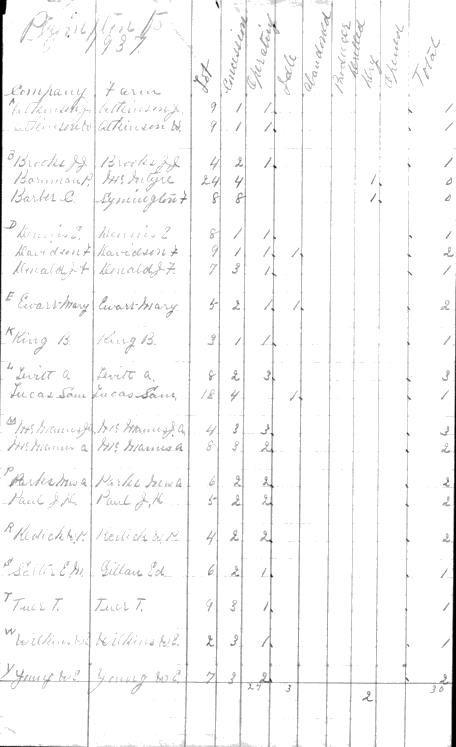 Plympton Tp
1937
Company Farm Lot Concession Operating Idle Abandoned Producer Drilled Dry Opened Total
A Atkinson J. Atkinson J. 9 1 1 1
Atkinson W. Atkinson W. 9 1 1 1
B Brooks J.J Brooks J.J 4 2 1 1
Bowman P. McIntyre 24 4 1 0
Barber C. Symington F 8 8 1 0
D Dennis E Dennis E 8 1 1 1
Davidson F Davidson F 9 1 1 1 2
Donald J. F Donald J. F. 7 3 1 1
E Ewart Mary Ewart Mary 5 2 1 1 2
K King B King B. 3 1 1 1
L Levitt A Levitt A. 8 2 3 3
Lucas Sam Lucas Sam 18 4 1 1
M McManus J.A McManus J.A. 4 3 3 3
McManus A McManus A 8 3 2 2
P Parks Mrs A Parks Mrs A 6 2 2 2
Paul J. H. Paul J. H 5 2 2 2
R Redick W.P. Redick W.P. 4 2 2 2
S E.M. Gillan Ed 6 2 1 1
T T. T. 9 3 1 1
W Wilkins W.E Wilkins W.E. 2 3 1 1
Y Young W.E Young W.E 7 3 2 2
27 3 2 30